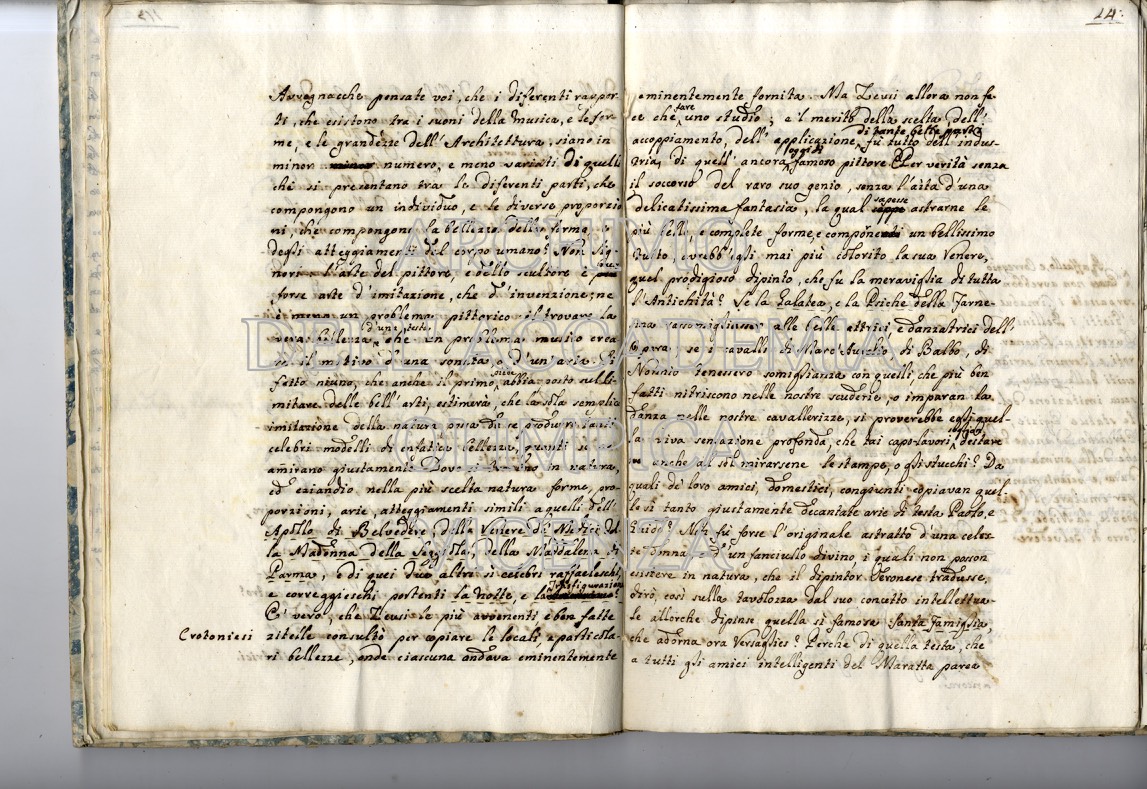 14.
Avvegnacche pensate voi, che i diferenti rappor-
ti, che esistono tra i suoni della Musica, e le for-
me, e le grandezze dell'Architettura, siano in
minor numero, e meno variati di quelli
che si presentano tra le diferenti parti, che
compongono un individuo, e le diverse proporzio
ni, che compongono la bellezza delle forme, e
degli atteggiamenti del corpo umano? Non Sig-
nori. L'arte del pittore, e dello scultore è più
forse arte d'imitazione, che d'invenzione; ne
è meno un problema pittorico il trovare la
vera bellezza d'una testa, che un problema musico crea
re il motivo d'una sonata, o d'un'aria. Di
fatto niuno, che anche il primo piede abbia posto sul li-
mitare delle bell'arti, estimerà, che la sola semplice
imitazione della natura produsse
celebri modelli di enfatica bellezza, quanti si
amirano giustamente. Dove si in natura,
ed eziandio nella più scelta natura forme, pro-
porzioni, arie, atteggiamenti simili a quelli dell'
Apollo di Belvedere, della Venere de' Medici? Del
la Madonna della Seggiola, della Maddalena di
Parma, e di quei due altri sì celebri raffaeleschi,
e correggieschi portenti la Notte, e la Trasfigurazione?
È vero, che Zeusi le più avvenenti e ben fatte
Crotoniesi
zitelle consultò per copiare le locali, e particola-
ri bellezze, onde ciascuna andava eminentemente
eminentemente fornita. Ma Zeusi allora non fe
ce che fare uno studio; e 'l merito della scelta, dell'
accoppiamento, dell'applicazione di tante belle parti fù tutto dell'indus-
tria di quell'ancora oggidì famoso pittore. E per verità senza
il soccorso del raro suo genio, senza l'aita d'una
delicatissima fantasia, la qual sapesse astrarne le
più belle, e complete forme, e comporne un bellissimo
tutto, avrebb'egli mai più colorito la sua Venere,
quel prodigioso dipinto, che fu la meraviglia di tutta
l'Antichità? Se la Galatea, e la Psiche della Farne-
sina rassomigliasser alle belle attrici e danzatrici dell'
Opera: se i cavalli di Marc'Aurelio, di Balbo, di
Nonnio tenessero somiglianza con quelli, che più ben
fatti nitriscono nelle nostre scuderie, o imparan la
danza nelle nostre cavallerizze, si proverebbe egli quel-
la viva sensazione profonda, che tai capo-lavori sogliono destare
anche al sol mirarsene le stampe, o gli stucchi? Da
quali de' loro amici, domestici, congiunti copiavan quel-
le sì tanto giustamente decantate arie di testa Paolo, e
Guido? Non fù forse l'originale astratto d'una celes-
te Donna, e d'un fanciullo divino, i quali non posson
esistere in natura, che il dipintor Veronese tradusse,
dirò, così sulla tavolozza dal suo concetto intellettua-
le allorche dipinse quella sì famosa Santa Famiglia,
che adorna ora Versaglies? Perche di quella testa, che
a tutti gli amici intelligenti del Maratta parea
ARCHIVIO
DELL'ACCADEMIA
OLIMPICA
VICENZA